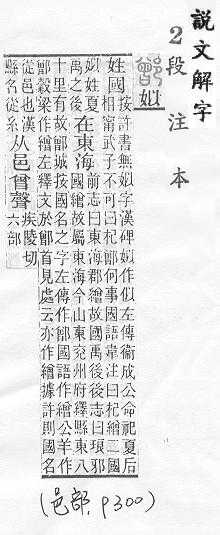 說文解字
2段注本
鄫 姒
姓國 按許書無姒字漢碑姒作似左傳衞成公命祀夏后
相甯武子不可曰杞鄫何事國語韋注曰杞繒二國
姒姓夏
禹之後
在東海 前志曰東海郡繒故國禹後後志曰琅邪
國繒故屬東海今山東兖州府嶧縣東八
十里有故鄫城按國名之字左傳作鄫國語作繒公羊作
鄫穀梁作繒左釋文於鄫首見處云亦作繒據許則國名
從邑也漢
縣名從糸
从邑曾聲 疾陵切
六部
(邑部, P300)